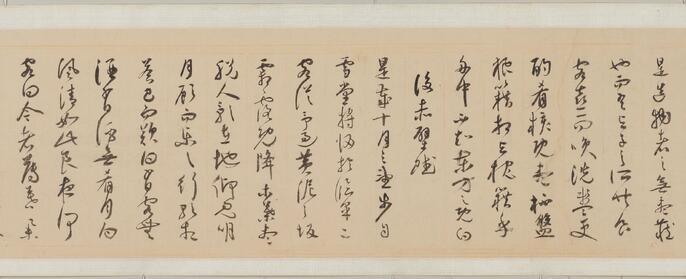 是造物者之無盡藏
也而吾與子之所共食
客喜而笑洗盞更
酌肴核既盡杯盤
狼籍相與枕籍乎
舟中不知東方之既白
後赤壁賦
是歲十月之望步自
雪堂將歸於臨皋二
客從予過黃泥之坂
霜露既降木葉盡
脫人影在地仰見明
月顧而樂之行歌相
答已而歎曰有客無
酒有酒無肴月白
風清如此良夜何
客曰今者薄暮舉